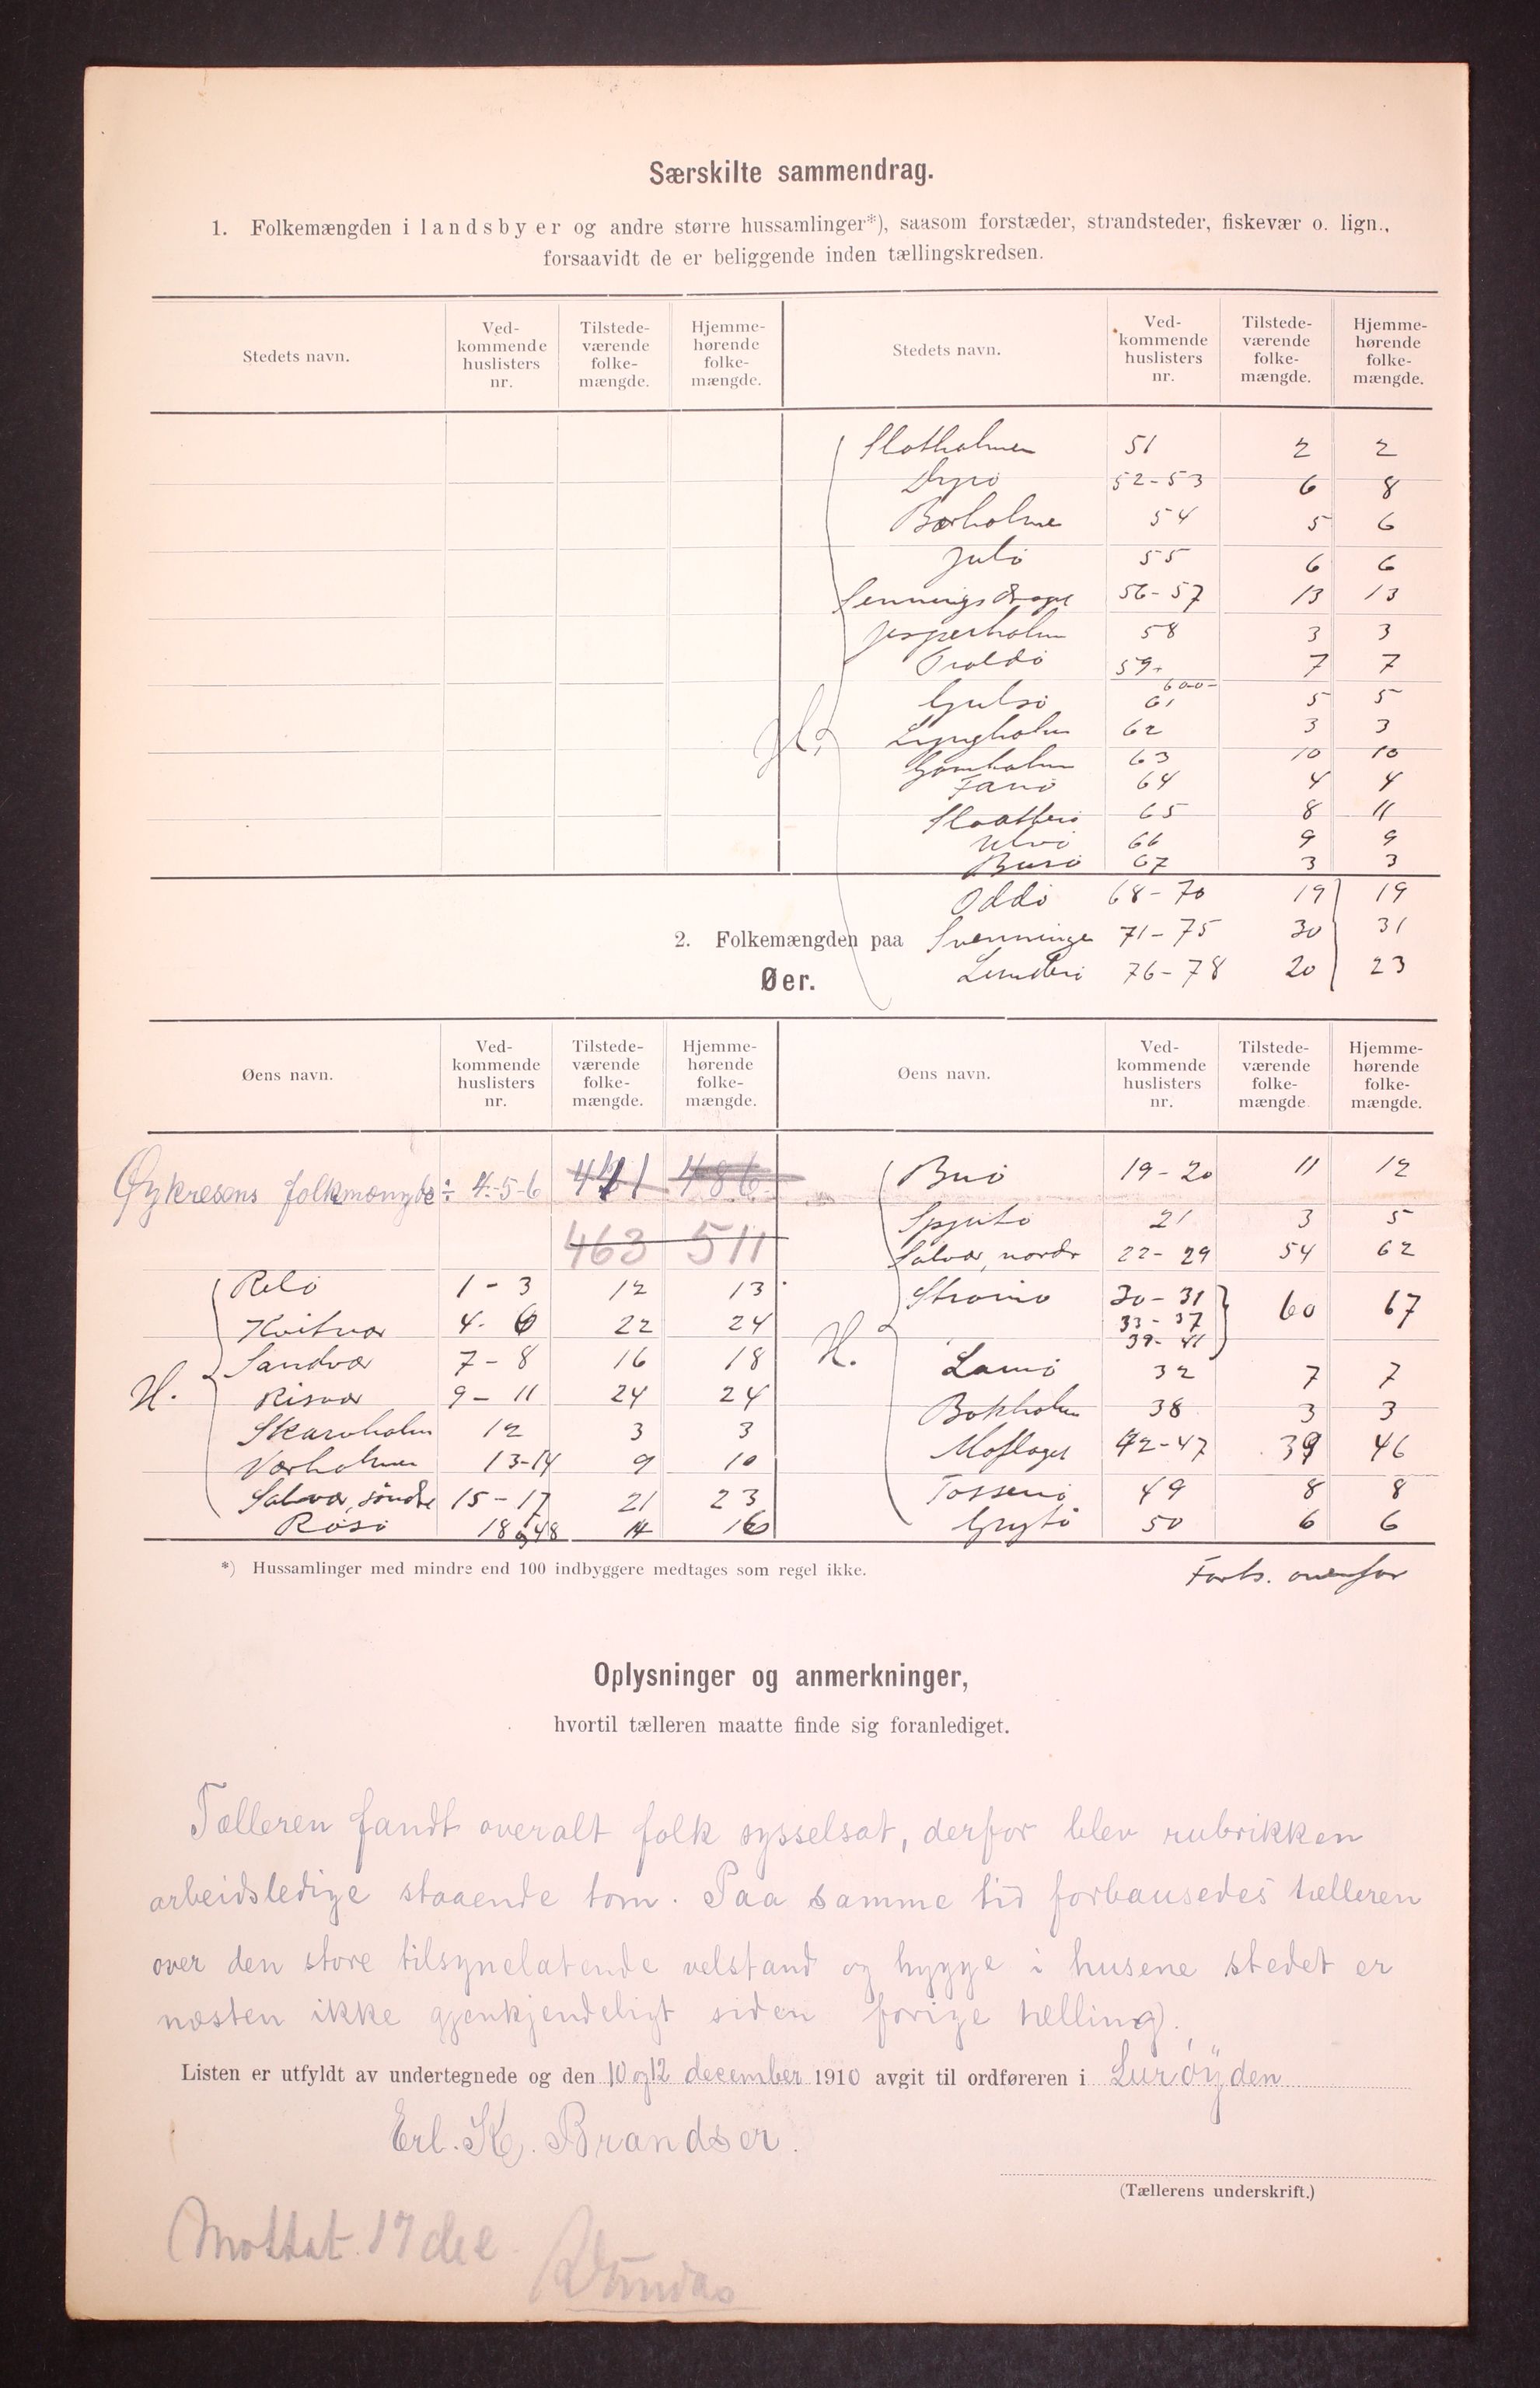 Særskilte sammendrag.
1. Folkemængden i landsbyer og andre større hussamlinger*), saasom forstæder, strandsteder, fiskevær o. lign.,
forsaavidt de er beliggende inden tællingskredsen.
Stedets navn. Ved-kommende huslisters nr. Tilstede-værende folke-mængde. Hjemme-hørende folke-mængde. Stedets navn. Ved-kommende huslisters nr. Tilstede-værende folke-mængde. Hjemme-hørende folke-mængde.
Slotholmen 51 2 2
Dyrø 52-53 6 8
Børholme 54 5 6
Julø 55 6 6
56-57 13 13
Jesperholm 58 3 3
59- 7 7
600-
Gulsø 61 5 5
Lyngholm 62 3 3
63 10 10
Fanø 64 4 4
Slaatterø 65 8 11
Ulvø 66 9 9
Burø 67 3 3
Oddø 68-70 19 19
2. Folkemængden paa Svenninge 71-75 30 31
Øer. Lunderø 76-78 20 23
Øens navn. Ved-kommende huslisters nr. Tilstede-værende folke-mængde. Hjemme-hørende folke-mængde. Øens navn. Ved-kommende huslisters nr. Tilstede-værende folke-mængde Hjemme-hørende folke-mængde.
Øykresens folkmængde ÷ 4-5-6 441 486 Buø 19-20 11 12
463 511 Spjutø 21 3 5
Salvær, nordr 22-29 54 62
Relø 1-3 12 13 Strømø 30-31 60 67
Hvitvær 4-6 22 24 33-37
39-41
H. Sandvær 7-8 16 18 H. Lamø 32 7 7
Risvær 9-11 24 24 Bokholm 38 3 3
Skarvholm 12 3 3 Moflaget 42-47 39 46
Værholmen 13-14 9 10 Tossenø 49 8 8
Salvær, søndre 15-17 21 23 Grytø 50 6 6
Røsø 18 og 48 14 16
*) Hussamlinger med mindre end 100 indbyggere medtages som regel ikke.
Forts. ovenfor
Oplysninger og anmerkninger,
hvortil tælleren maatte finde sig foranlediget.
Tælleren fandt overalt folk sysselsat, derfor blev rubrikken
arbeidsledige staaende tom. Paa samme tid forbausedes tælleren
over den store tilsynelatende velstand og hygge i husene stedet er
næsten ikke gjenkjendeligt siden forige tælling).
Listen er utfyldt av undertegnede og den 10 og 12 december 1910 avgit til ordføreren i Lurøyden
Erl. K. Brandser.
(Tællerens underskrift.)
Mottat 17 dec